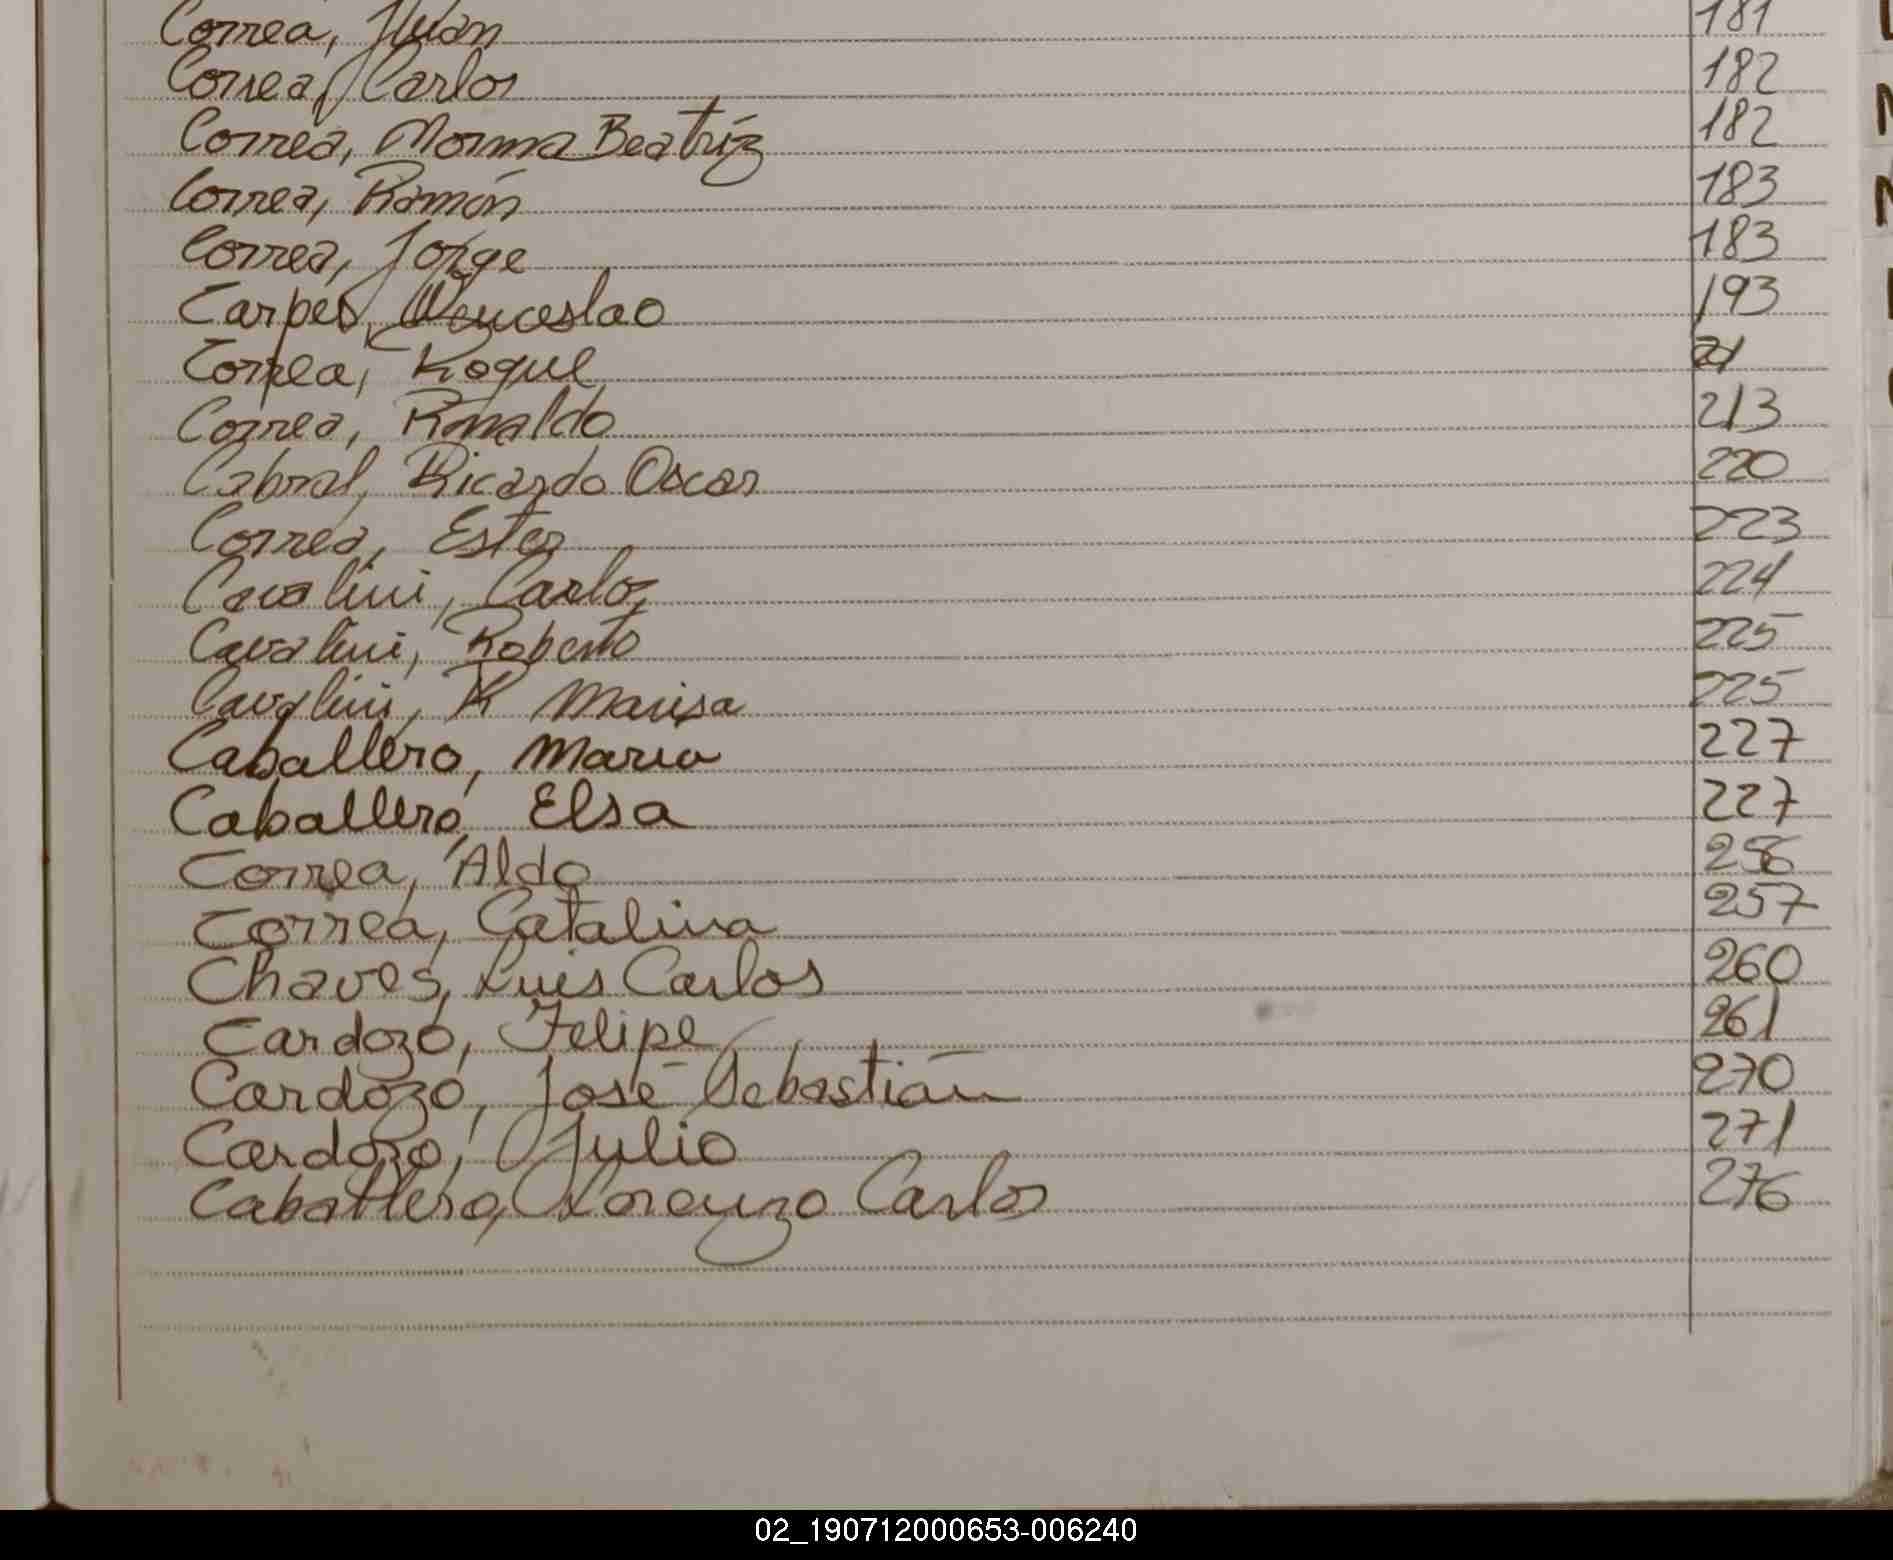 Correa, Juan 181
Correa, Carlos 182
Correa, Norma Beatríz 182
Correa, Ramón 183
Correa, Jorge 183
Carpes, Wenceslao 193
Correa, Roque
Correa, Rinaldo 213
Cabral, Ricardo Oscar 220
Correa, Ester 223
Cavalini, Carlos 224
Cavalini, Roberto 225
Cavalini, R Marisa 225
Caballero, Maria 227
Caballero, Elsa 227
Correa, Aldo 256
Correa, Catalina 257
Chaves, Luis Carlos 260
Cardozo, Felipe 261
Cardozo, José Sebastián 270
Cardozo, Julio 271
Caballero, Lorenzo Carlos 276
02_190712000653-006240